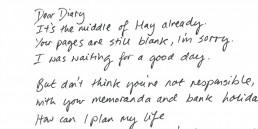 Dear Diary
It's the middle of May already.
Your pages are still blank, I'm sorry.
I was waiting for a good day.
But don't think you're not responsible,
with your memoranda and bank holida
How can I plan my life